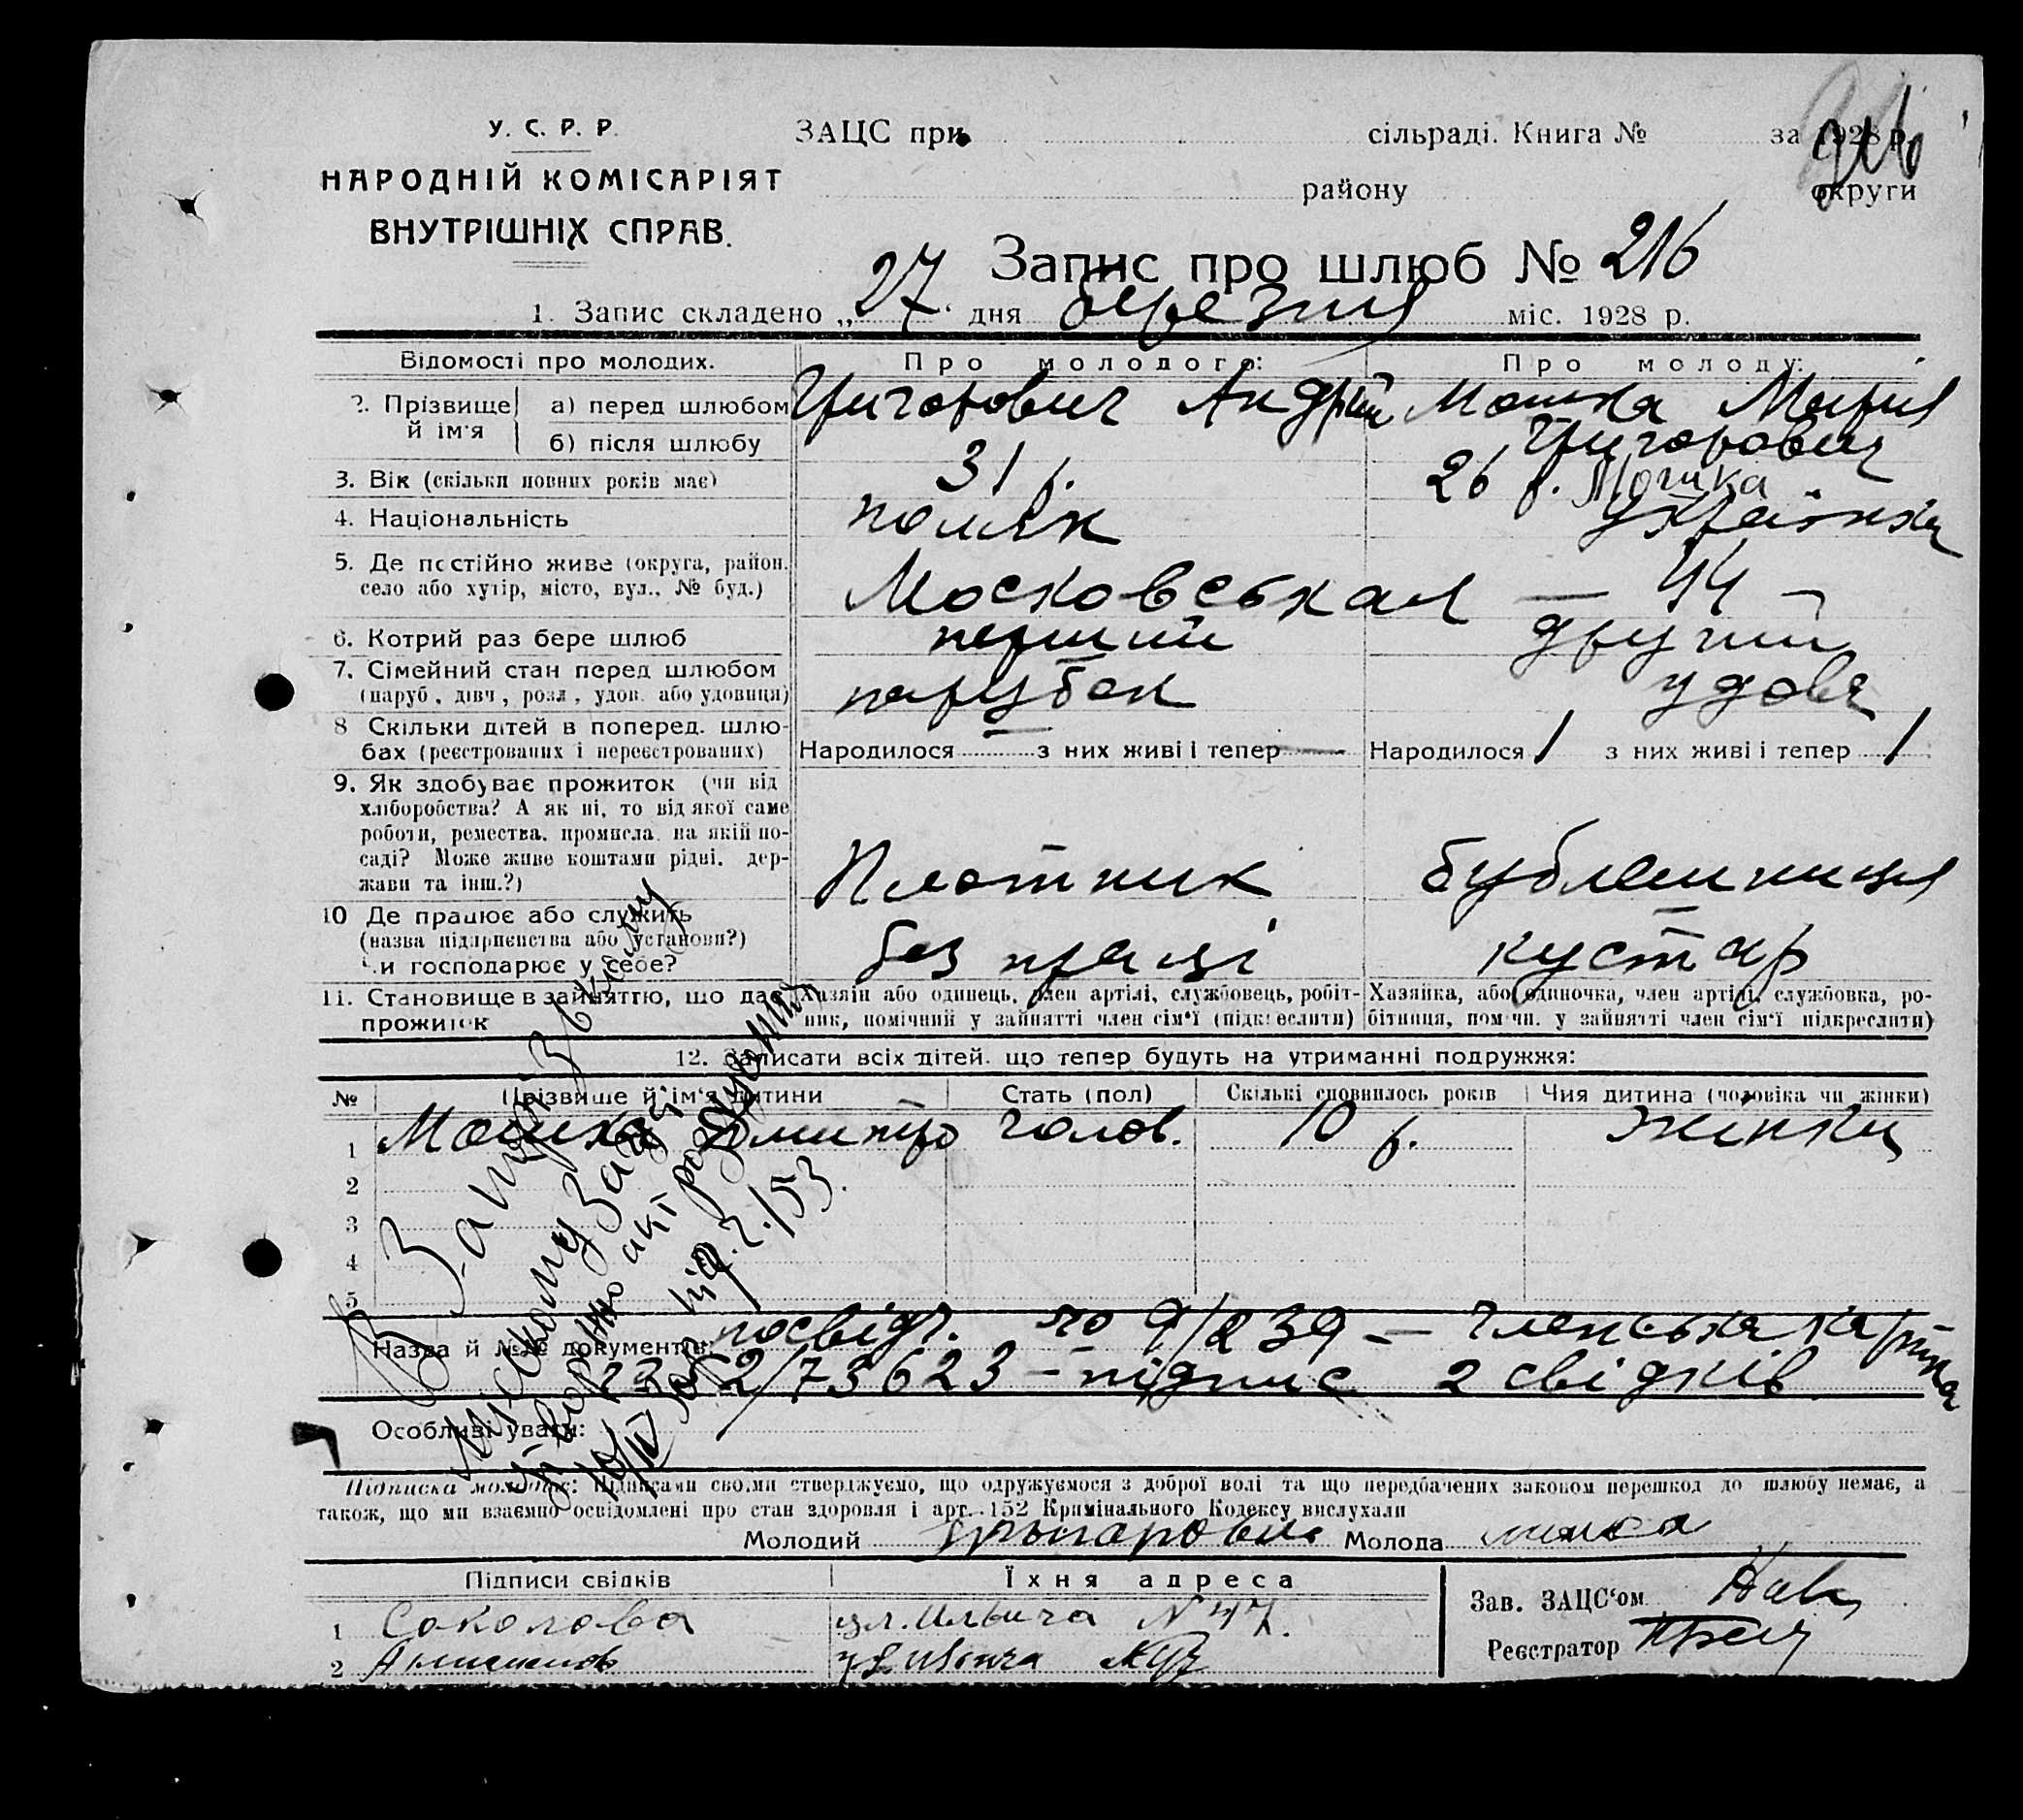 У. С. Р. Р.
НАРОДНІЙ КОМІСАРІЯТ
ВНУТРІШНІХ СПРАВ.
ЗАЦС при сільраді. Книга № за 1928 р.
району округи
Запис про шлюб № 216
1. Запис складено „27“ дня березня міс. 1928 р.
Відомості про молодих. Про молодого: Про молоду:
2. Прізвище й ім'я
а) перед шлюбом Григорович Андрій Мошка Марія
б) після шлюбу Григорович
3. Вік (скільки повних років має) 31 р. 26 р.
4. Національність поляк українка
5. Де постійно живе (округа, район, село або хутір, місто, вул., № буд.) Московськая — 44 —
6. Котрий раз бере шлюб перший другий
7. Сімейний стан перед шлюбом (паруб., дівч., розл., удов. або удовиця) парубок удова
8 Скільки дітей в поперед. шлюбах (реєстрованих і нереєстрованих) Народилося — з них живі і тепер — Народилося 1 з них живі і тепер 1
9. Як здобуває прожиток (чи від хліборобства? А як ні, то від якої саме роботи, ремества, промисла, на якій посаді? Може живе коштами рідні, держави та інш.?) Плотник бублешниця
10 Де працює або служить (назва підприєнства або установи?) Чи господарює у себе? без праці кустар
11. Становище в зайняттю, що дає прожиток
Хазяїн або одинець, член артілі, службовець, робітник, помічний у зайнятті член сім'ї (підкреслити)
Хазяйка, або одиночка, член артілі, службовка, робітниця, помічн. у зайнятті член сім'ї підкреслити)
12. Записати всіх дітей, що тепер будуть на утриманні подружжя:
№ Прізвище й ім'я дитини Стать (пол) Скількі сповнилось років Чия дитина (чоловіка чи жінки)
1 Мошка Дмитро чолов. 10 р. жінки
2
3
4
5
Назва й №№ документів: посвідч. — членська картка
73623 — підпис 2 свідків
Особливі уваги:
Підписка молодих: Підписами своїми стверджуємо, що одружуємося з доброї волі та що передбачених законом перешкод до шлюбу немає, а
також, що ми взаємно освідомлені про стан здоровля і арт. 152 Кримінального Кодексу вислухали
Молодий Молода
Підписи свідків Їхня адреса
1 Соколова ул. Ильича N 47.
2
Зав. ЗАЦС'ом
Реєстратор